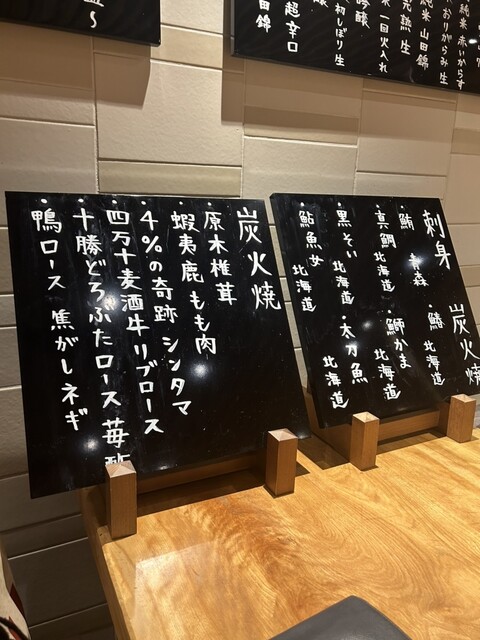 純米 赤いからす
おりがらみ生
純米 山田錦
一回火入れ
初しぼり生
超辛口
田錦
刺身
・鮪 青森
・真鯛 北海道
・黒そい 北海道
・鮎魚女 北海道
炭火焼
・鰆 北海道
・鰤かま 北海道
・太刀魚 北海道
炭火焼
・原木椎茸
・蝦夷鹿 もも肉
・4%の奇跡 シンタマ
・四万十麦酒牛リブロース
・十勝どろぶたロース 苺
・鴨ロース 焦がしネギ